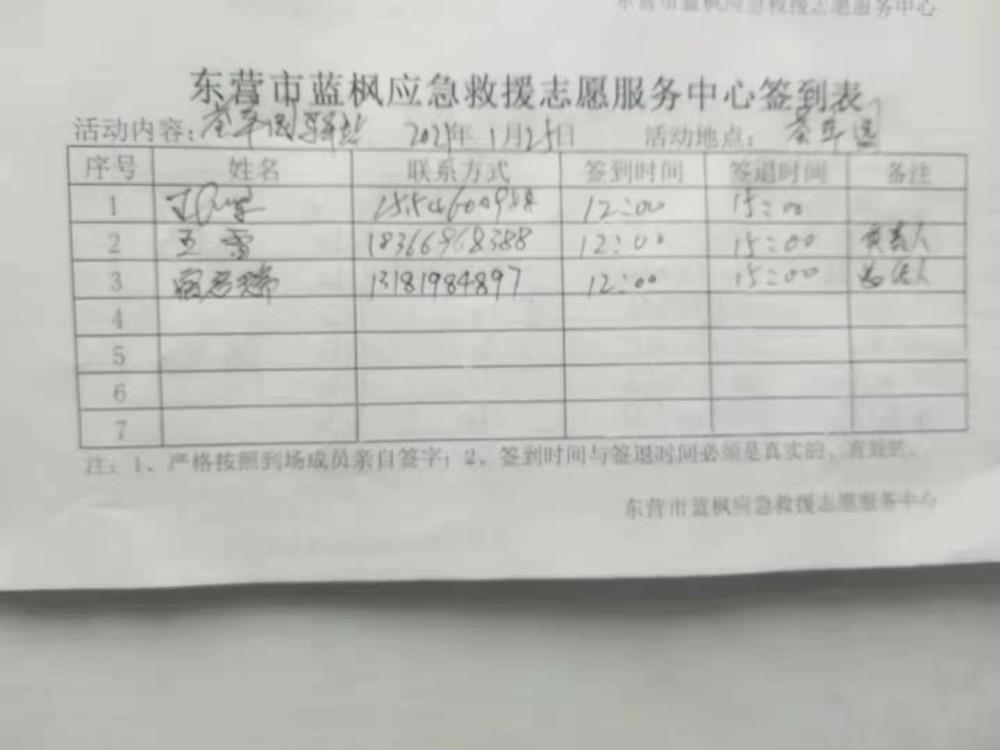 东营市蓝枫应急救援志愿服务中心
东营市蓝枫应急救援志愿服务中心签到表
活动内容: 2021年1月25日 活动地点:
序号 姓名 联系方式 签到时间 签退时间 备注
1 12:00 15:00
2 王雪 18366968388 12:00 15:00 负责人
3 13181984897 12:00 15:00
4
5
6
7
注: 1、严格按照到场成员亲自签字; 2、签到时间与签退时间必须是真实的、有效的。
东营市蓝枫应急救援志愿服务中心